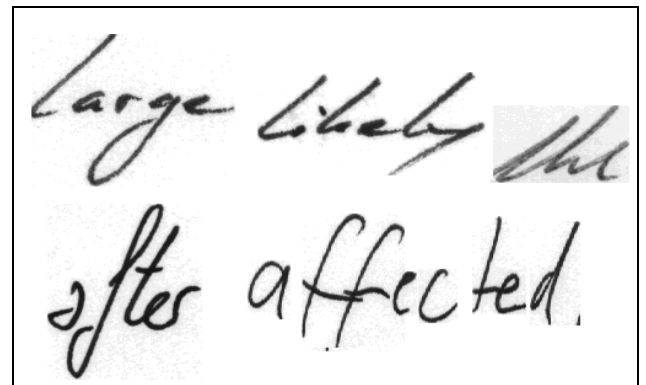 large likely the
after affected.